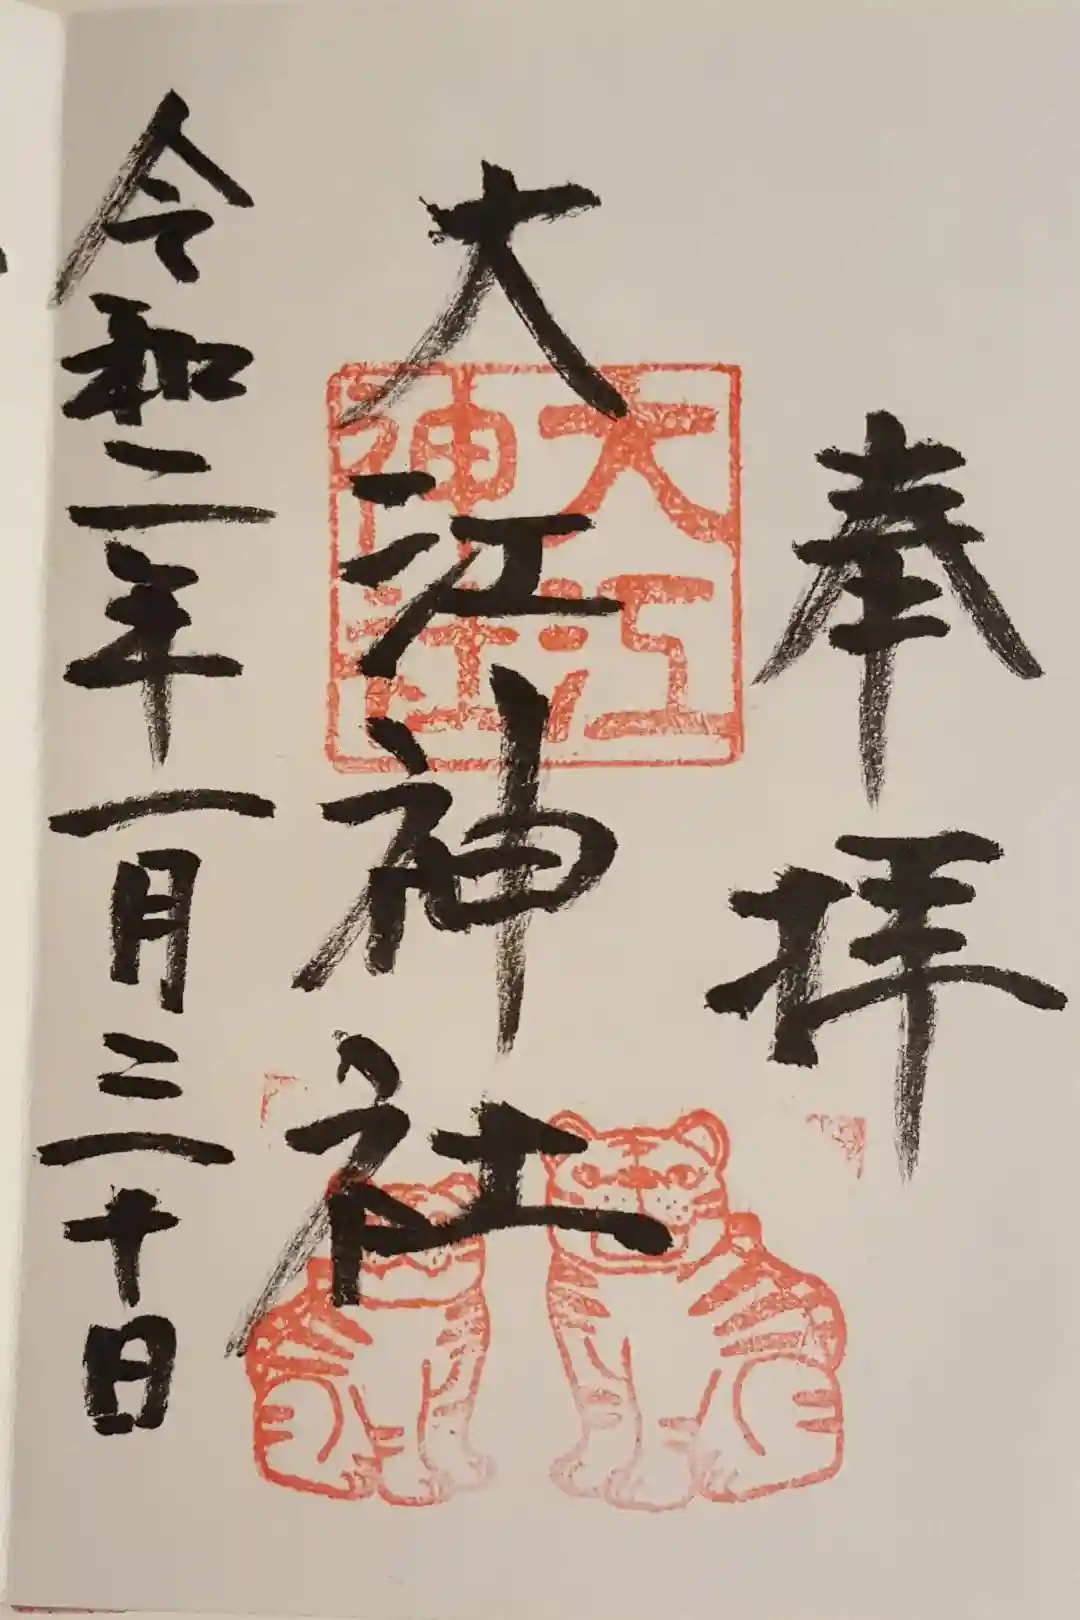 奉拝
大江神社
大江
神社
令和二年一月三十日